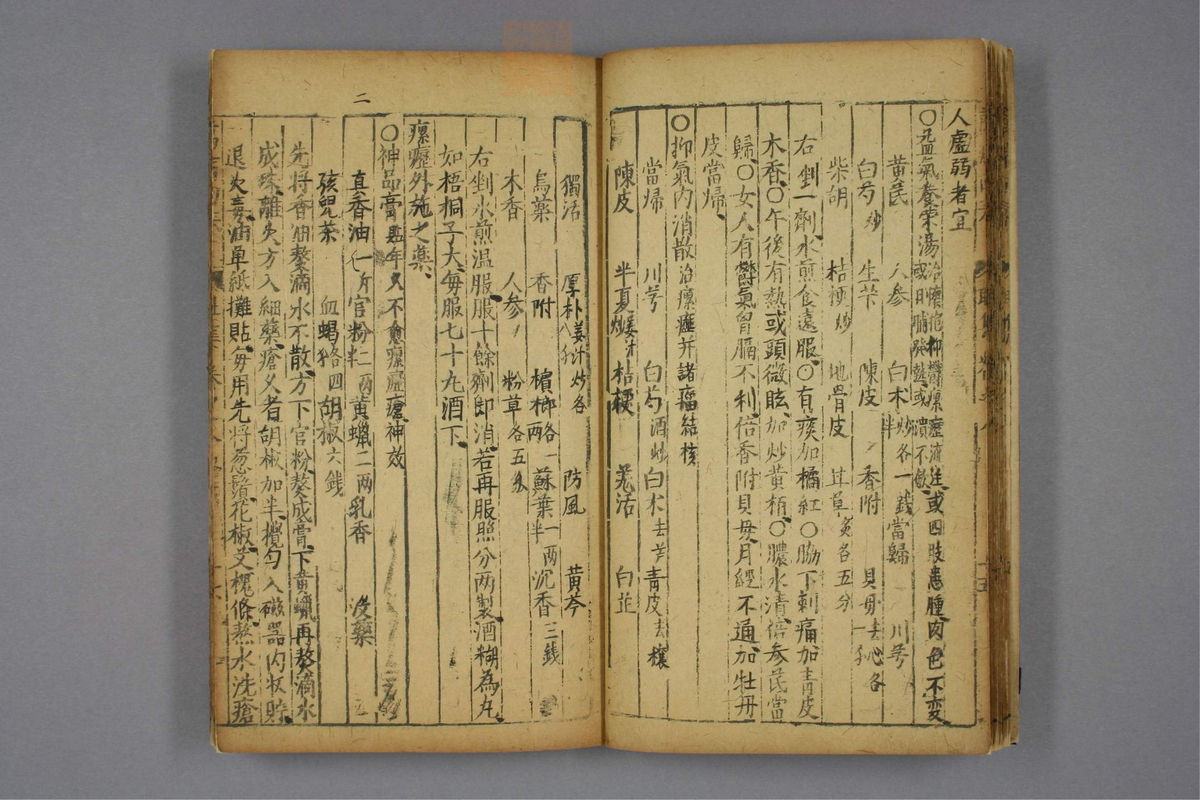 人虛弱者宜
〇益氣養榮湯治懷抱抑鬱瘰癧流注或四肢患腫肉色不變
或日晡發熱或潰不斂
黃芪 人參 白朮炒各一錢半 當歸 川芎
白芍炒 生芐 陳皮 香附 貝母去心各一分
柴胡 桔梗炒 地骨皮 甘草炙各五分
右剉一劑水煎食遠服〇有痰加橘紅〇脇下刺痛加青皮
木香〇午後有熱或頭微眩加炒黃栢〇膿水清倍參芪當
歸〇女人有鬱氣胷膈不利倍香附貝母月經不通加牡丹
皮當歸
〇抑氣內消散治瘰癧并諸瘤結核
當歸 川芎 白芍酒炒 白朮去芦 青皮去穰
陳皮 半夏姜汁炒 桔梗 羌活 白芷
獨活 厚朴姜汁炒各八分 防風 黃芩
烏藥 香附 檳榔各一兩 蘇葉一兩半 沉香三錢
木香 人參 粉草各五分
右剉水煎温服服十餘劑即消若再服照分兩製酒糊為丸
如梧桐子大每服七十丸酒下
瘰癧外施之藥
〇神品膏 年久不愈瘰癧瘡神效
真香油一斤 官粉二兩半 黃蠟二兩 乳香 沒藥
孩兒茶 血蝎各四 胡椒六錢
先將香油熬滴水不散方下官粉熬成膏下黃蠟再熬滴水
成珠離火方入細藥瘡久者胡椒加半攪勻入磁器內收貯
退火毒油單紙攤貼每用先將葱鬚花椒艾槐條熬水洗瘡
二